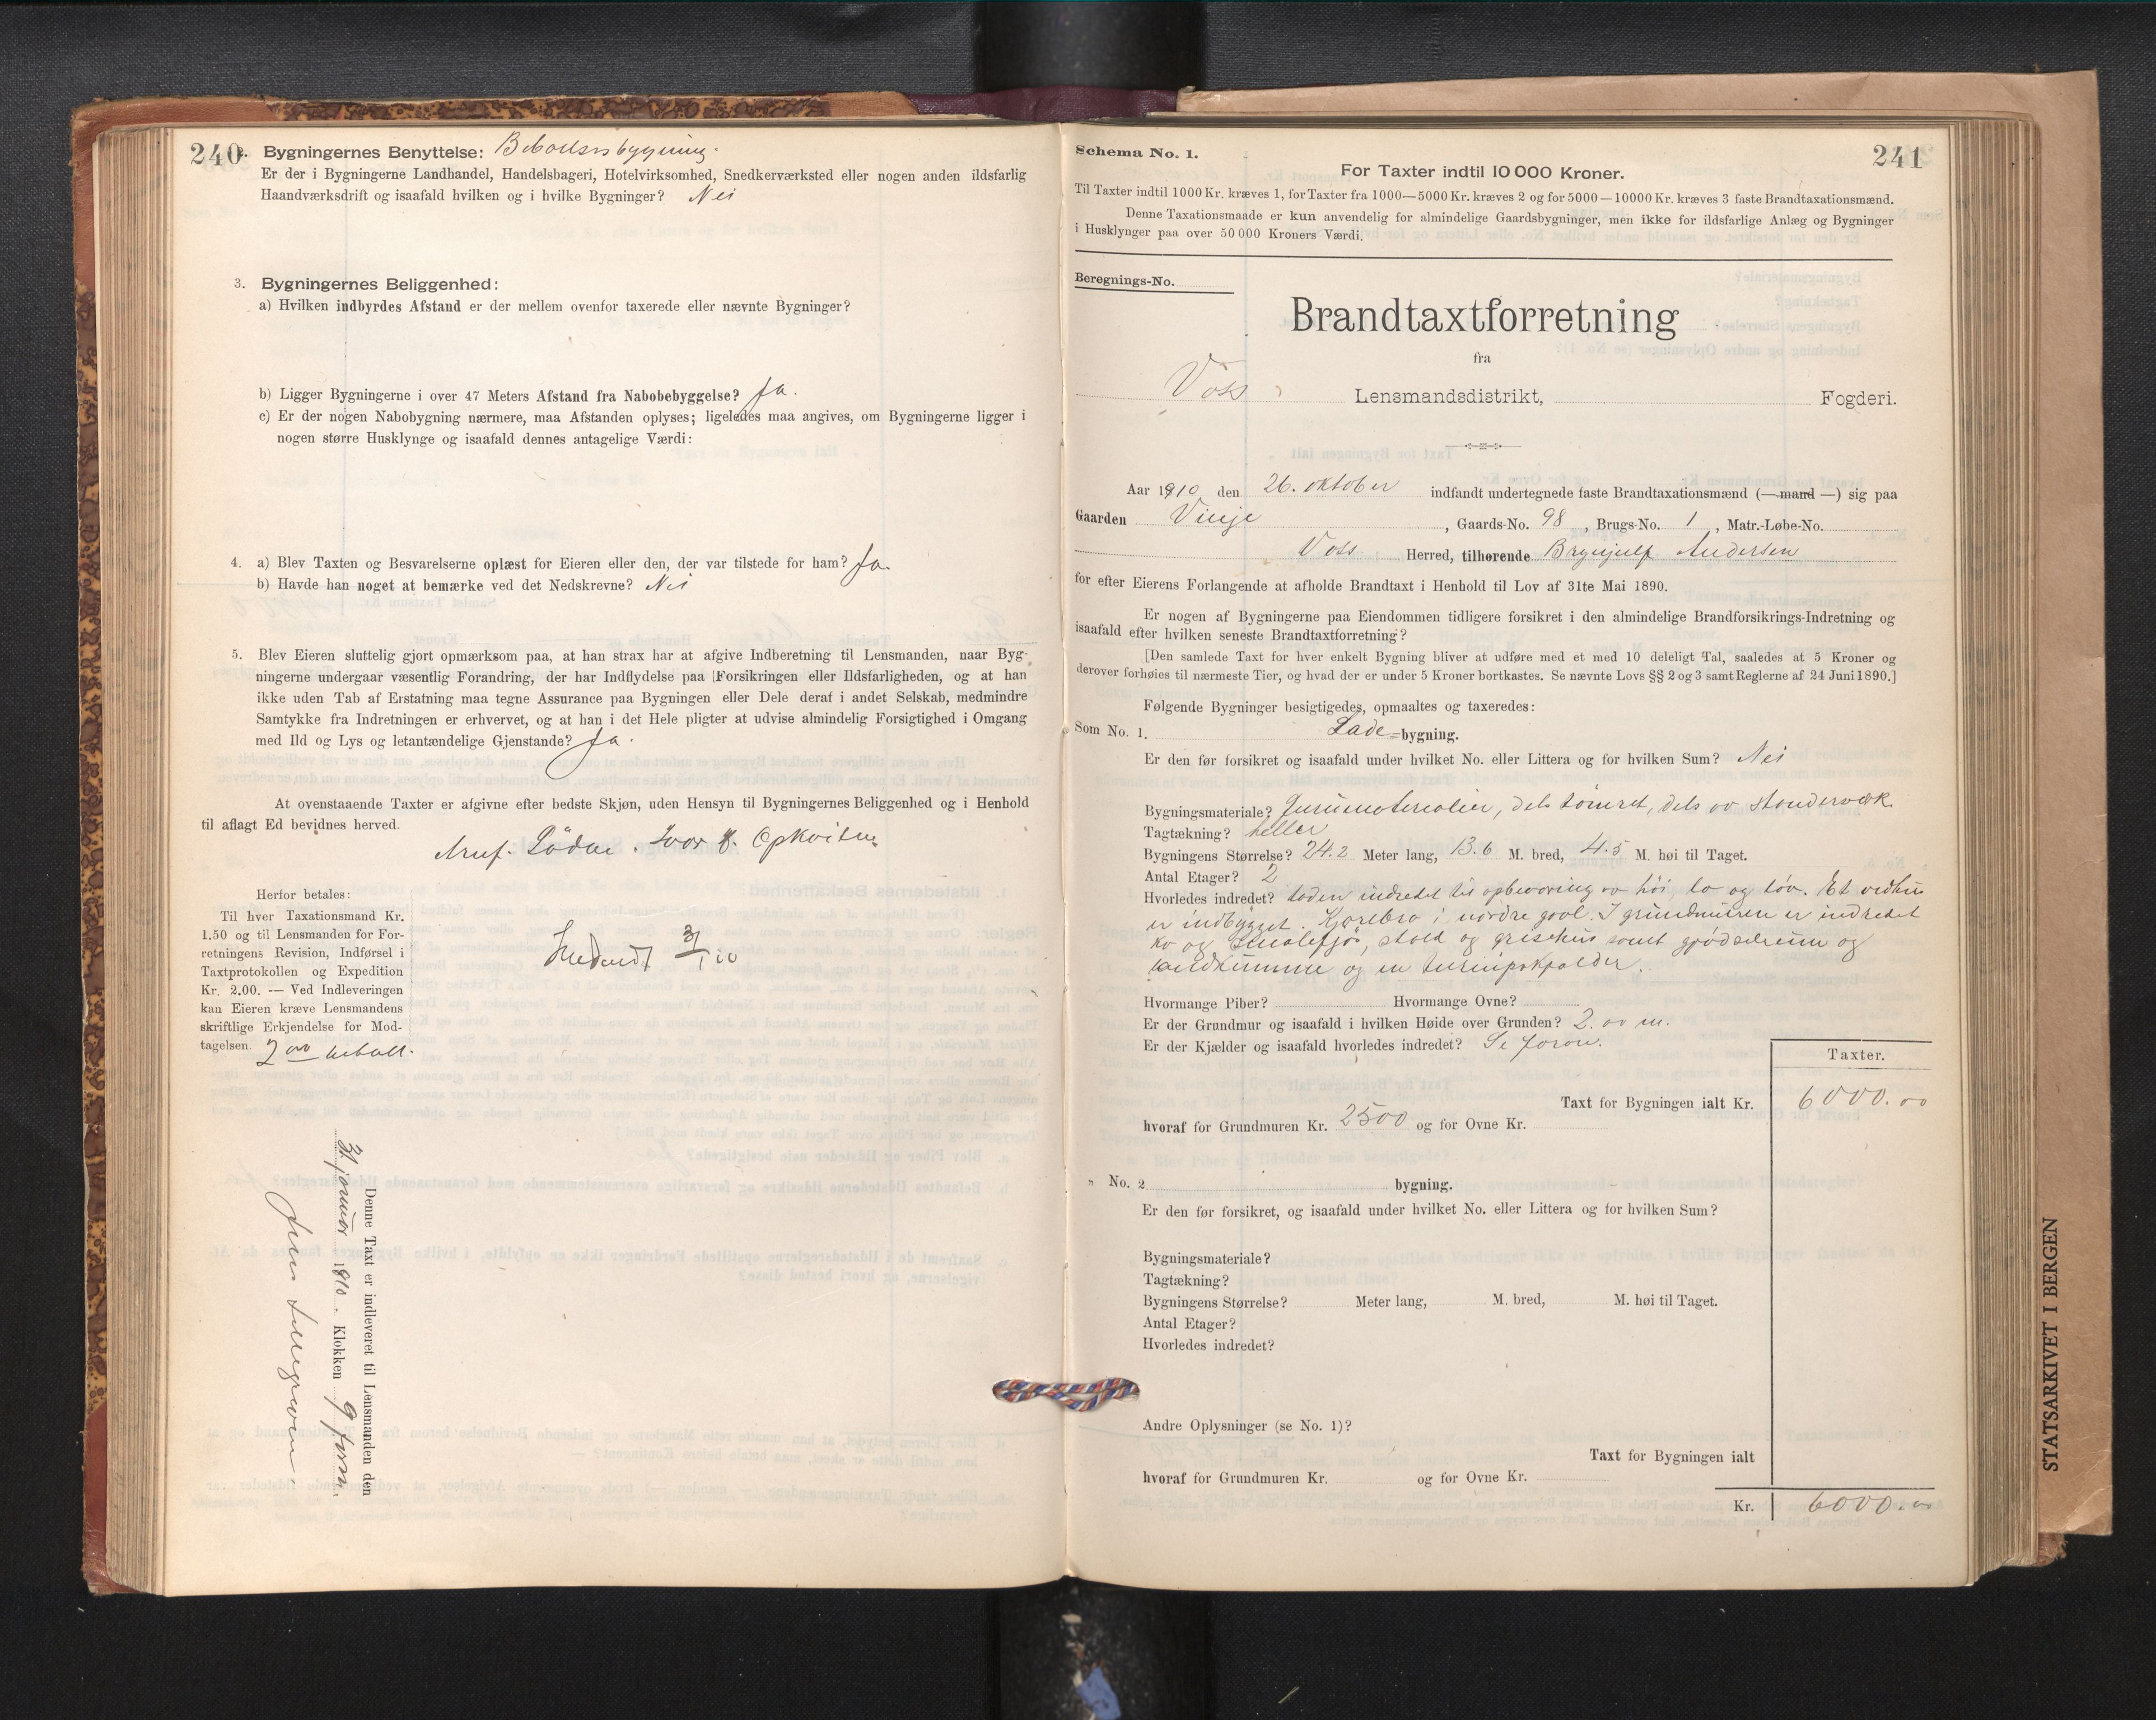 240
2. Bygningernes Benyttelse: Beboelsesbygning.
Er der i Bygningerne Landhandel, Handelsbageri, Hotelvirksomhed, Snedkerværksted eller nogen anden ildsfarlig
Haandværksdrift og isaafald hvilken og i hvilke Bygninger? Nei
3. Bygningernes Beliggenhed:
a) Hvilken indbyrdes Afstand er der mellem ovenfor taxerede eller nævnte Bygninger?
b) Ligger Bygningerne i over 47 Meters Afstand fra Nabobebyggelse? Ja.
c) Er der nogen Nabobygning nærmere, maa Afstanden oplyses; ligeledes maa angives, om Bygningerne ligger i
nogen større Husklynge og isaafald dennes antagelige Værdi:
4. a) Blev Taxten og Besvarelserne oplæst for Eieren eller den, der var tilstede for ham? Ja.
b) Havde han noget at bemærke ved det Nedskrevne? Nei
5. Blev Eieren sluttelig gjort opmærksom paa, at han strax har at afgive Indberetning til Lensmanden, naar Byg-
ningerne undergaar væsentlig Forandring, der har Indflydelse paa Forsikringen eller Ildsfarligheden, og at han
ikke uden Tab af Erstatning maa tegne Assurance paa Bygningen eller Dele deraf i andet Selskab, medmindre
Samtykke fra Indretningen er erhvervet, og at han i det Hele pligter at udvise almindelig Forsigtighed i Omgang
med Ild og Lys og letantændelige Gjenstande? Ja.
At ovenstaaende Taxter er afgivne efter bedste Skjøn, uden Hensyn til Bygningernes Beliggenhed og i Henhold
til aflagt Ed bevidnes herved.
Ivar Opkvitne
Herfor betales:
Til hver Taxationsmand Kr.
1.50 og til Lensmanden for For-
retningens Revision, Indførsel i
Taxtprotokollen og Expedition
Kr. 2.00. — Ved Indleveringen
kan Eieren kræve Lensmandens
skriftlige Erkjendelse for Mod-
tagelsen. 2 00 betalt.
Denne Taxt er indleveret til Lensmanden den
31 januar 1910. Klokken 9 form.
Jens Lillegraven
Schema No. 1.
241
For Taxter indtil 10 000 Kroner.
Til Taxter indtil 1000 Kr. kræves 1, for Taxter fra 1000—5000 Kr. kræves 2 og for 5000—10000 Kr. kræves 3 faste Brandtaxationsmænd.
Denne Taxationsmaade er kun anvendelig for almindelige Gaardsbygninger, men ikke for ildsfarlige Anlæg og Bygninger
i Husklynger paa over 50 000 Kroners Værdi.
Beregnings-No.
Brandtaxtforretning
fra
Voss Lensmandsdistrikt, Fogderi.
Aar 1910 den 26. oktober indfandt undertegnede faste Brandtaxationsmænd (—mand—) sig paa
Gaarden Vinje, Gaards-No. 98, Brugs-No. 1, Matr.-Løbe-No.
Voss Herred, tilhørende Brynjulf Andersen
for efter Eierens Forlangende at afholde Brandtaxt i Henhold til Lov af 31te Mai 1890.
Er nogen af Bygningerne paa Eiendommen tidligere forsikret i den almindelige Brandforsikrings-Indretning og
isaafald efter hvilken seneste Brandtaxtforretning?
[Den samlede Taxt for hver enkelt Bygning bliver at udføre med et med 10 deleligt Tal, saaledes at 5 Kroner og
derover forhøies til nærmeste Tier, og hvad der er under 5 Kroner bortkastes. Se nævnte Lovs §§ 2 og 3 samt Reglerne af 24 Juni 1890.]
Følgende Bygninger besigtigedes, opmaaltes og taxeredes:
Som No. 1. Lade=bygning.
Er den før forsikret og isaafald under hvilket No. eller Littera og for hvilken Sum? Nei
Bygningsmateriale? Furumaterialier, dels tømret, dels av standerværk
Tagtækning? heller
Bygningens Størrelse? 24.2 Meter lang, 13.6 M. bred, 4.5 M. høi til Taget.
Antal Etager? 2
Hvorledes indredet? Laden indredet til opbevaring av høi lo og løv. Et vedhus
er indbygget. Kjørebro i nordre gavl. I grundmuren er indredet
ko og smalefjøs, stald og grisehus samt gjødselrum og
landkumme og en turnipskjælder.
Hvormange Piber? Hvormange Ovne?
Er der Grundmur og isaafald i hvilken Høide over Grunden? 2.00 m.
Er der Kjælder og isaafald hvorledes indredet? Se foran.
Taxter.
Taxt for Bygningen ialt Kr. 6000.00
hvoraf for Grundmuren Kr. 2500 og for Ovne Kr.
„ No. 2 bygning.
Er den før forsikret, og isaafald under hvilket No. eller Littera og for hvilken Sum?
Bygningsmateriale?
Tagtækning?
Bygningens Størrelse? Meter lang, M. bred, M. høi til Taget.
Antal Etager?
Hvorledes indredet?
Andre Oplysninger (se No. 1)?
Taxt for Bygningen ialt
hvoraf for Grundmuren Kr. og for Ovne Kr.
Kr. 6000.00
STATSARKIVET I BERGEN